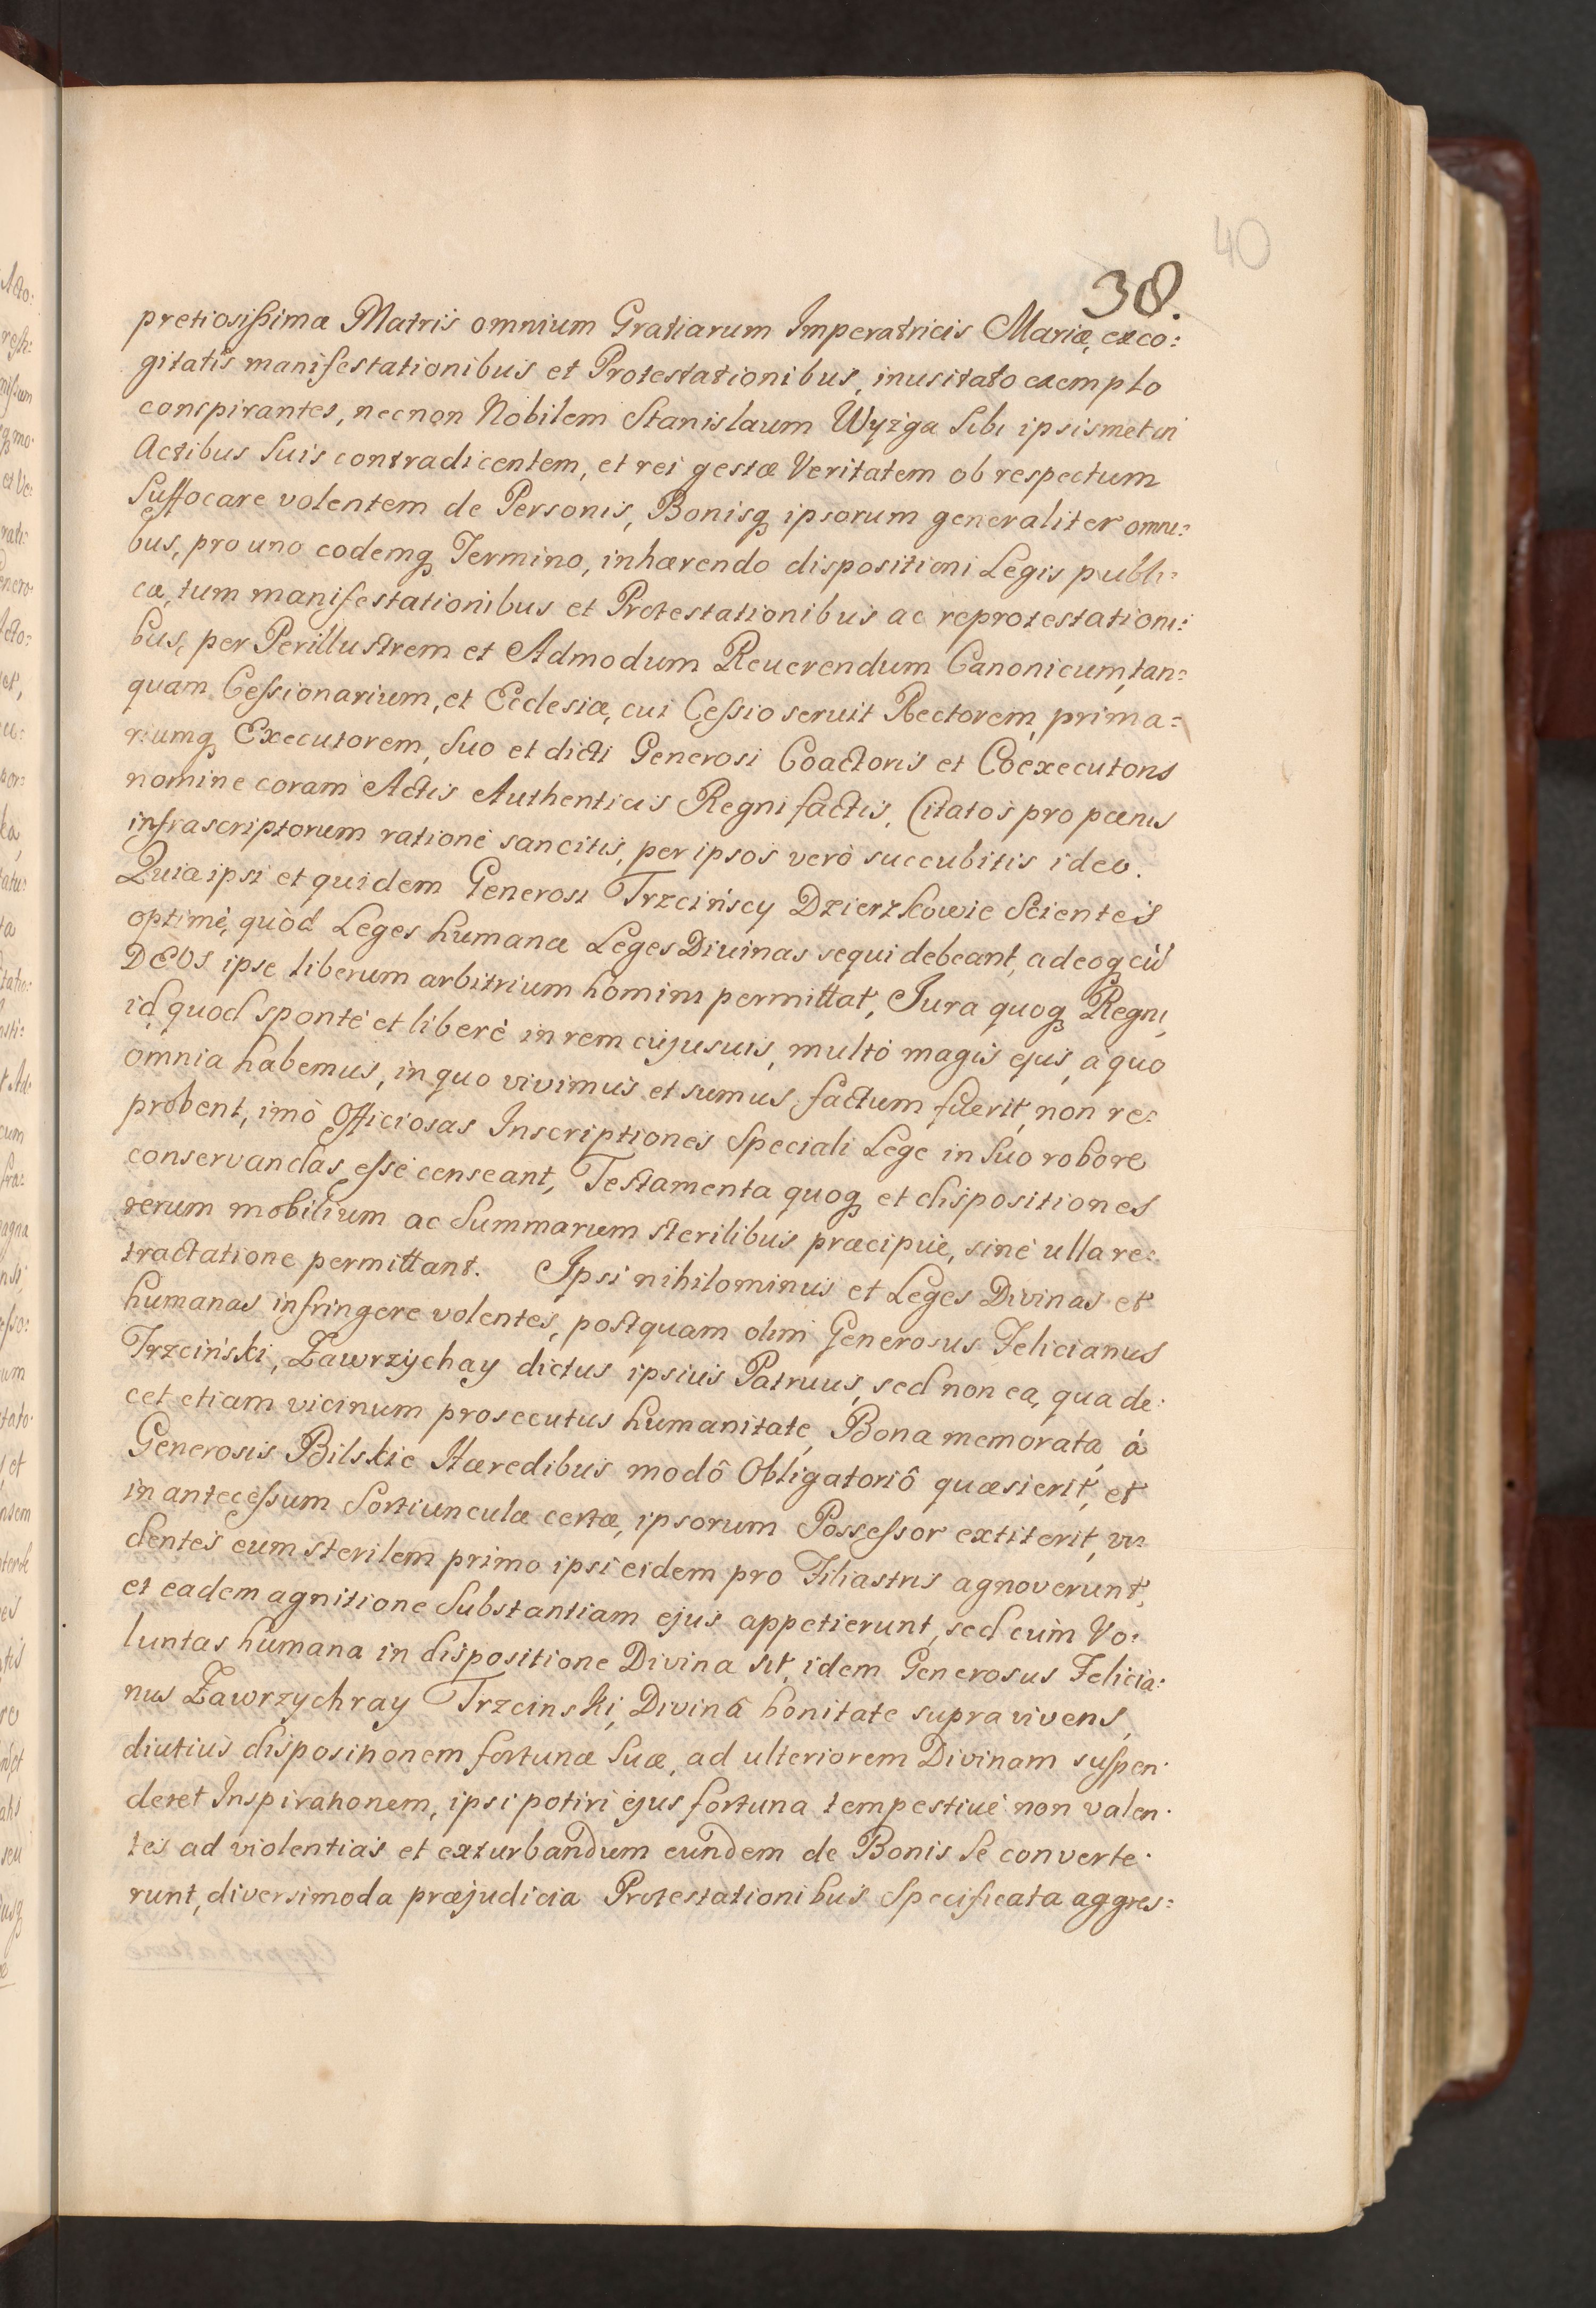 40
38.
pretiosissimæ Matris omnium Gratiarum Imperatricis Mariæ, exco:
gitatis manifestationibus et Protestationibus, inusitato exemplo
conspirantes, necnon Nobilem Stanislaum Wyzga Sibi ipsismet in
Actibus Suis contradicentem, et rei gestæ Veritatem ob respectum
Suffocare volentem de Personis, Bonisq; ipsorum generaliter omni:
bus, pro uno eodemq; Termino, inhærendo dispositioni Legis publi:
cæ, tum manifestationibus et Protestationibus ac reprotestationi:
bus, per Perillustrem et Admodum Reuerendum Canonicum, tan:
quam Cessionarium, et Ecclesiæ, cui Cessio seruit Rectorem, prima:
riumq; Executorem, Suo et dicti Generosi Coactoris et Coexecutoris
nomine coram Actis Authenticis Regni factis, Citatos pro pænis
infrascriptorum ratione sancitis, per ipsos verò succubitis ideo.
Quia ipsi et quidem Generosi Trzcińscy Dzierzkowie Scientes
optimè, quòd Leges humanæ Leges Diuinas sequi debeant, adeoq; cù
DEUS ipse liberum arbitrium homini permittat, Jura quoq; Regni,
id quod spontè et liberè in rem cujusuis, multò magis ejus, à quo
omnia habemus, in quo vivimus et sumus factum fuerit, non re:
probent, imò Officiosas Inscriptiones Speciali Lege in Suo robore
conservandas esse censeant, Testamenta quoq; et dispositiones
rerum mobilium ac Summarum sterilibus præcipuè, sinè ulla re:
tractatione permittant. Ipsi nihilominus et Leges Divinas et
humanas infringere volentes, postquam olim Generosus Felicianus
Trzciński, Zawrzychay dictus ipsius Patruus, sed non ea, qua de:
cet etiam vicinum prosecutus humanitate, Bona memorata, à
Generosis Bilskie Hæredibus modô Obligatoriô quæsierit, et
in antecessum Sortiunculæ certæ, ipsorum Possessor extiterit, vi:
dentes eum sterilem primo ipsi eidem pro Filiastris agnoverunt,
et eadem agnitione Substantiam ejus appetierunt, sed cùm Vo:
luntas humana in dispositione Divina sit, idem Generosus Felicia:
nus Zawrzychray Trzcinski, Divinâ bonitate supravivens,
diutius dispositionem fortunæ Suæ, ad ulteriorem Divinam suspen:
deret Inspirationem, ipsi potiri ejus fortuna tempestiuè non valen:
tes ad violentias et exturbandum eundem de Bonis Se converte:
runt, diversimoda præjudicia Protestationibus Specificata aggres: